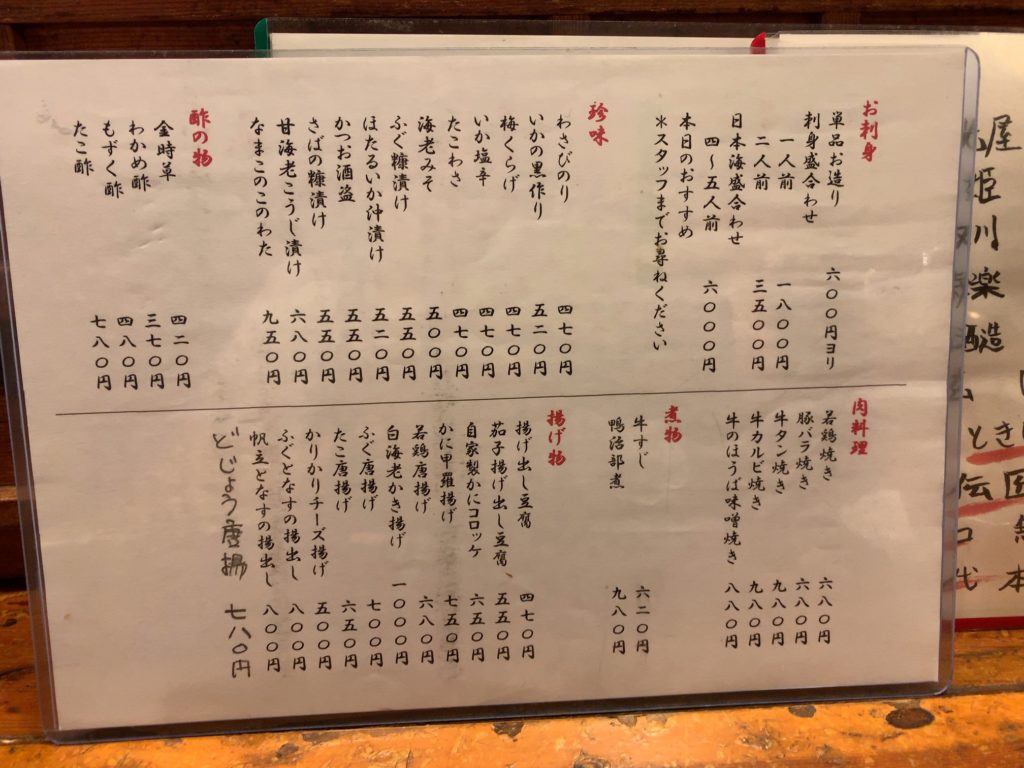 お刺身
単品お造り 六〇〇円ヨリ
刺身盛合わせ
一人前 一八〇〇円
二人前 三五〇〇円
日本海盛合わせ
四〜五人前 六〇〇〇円
本日のおすすめ
*スタッフまでお尋ねください
珍味
わさびのり 四七〇円
いかの黒作り 五二〇円
梅くらげ 四七〇円
いか塩辛 四七〇円
たこわさ 四七〇円
海老みそ 五〇〇円
ふぐ糠漬け 五五〇円
ほたるいか沖漬け 五二〇円
かつお酒盗 五五〇円
さばの糠漬け 五五〇円
甘海老こうじ漬け 六八〇円
なまこのこのわた 九五〇円
酢の物
金時草 四二〇円
わかめ酢 三七〇円
もずく酢 四八〇円
たこ酢 七八〇円
肉料理
若鶏焼き 六八〇円
豚バラ焼き 六八〇円
牛タン焼き 九八〇円
牛カルビ焼き 九八〇円
牛のほうば味噌焼き 八八〇円
煮物
牛すじ 六二〇円
鴨治部煮 九八〇円
揚げ物
揚げ出し豆腐 四七〇円
茄子揚げ出し豆腐 五五〇円
自家製かにコロッケ 六五〇円
かに甲羅揚げ 七五〇円
若鶏唐揚げ 六八〇円
白海老かき揚げ 一〇〇〇円
ふぐ唐揚げ 七〇〇円
たこ唐揚げ 六五〇円
かりかりチーズ揚げ 五〇〇円
ふぐとなすの揚出し 八〇〇円
帆立となすの揚出し 八〇〇円
どじょう唐揚 七八〇円
屋
姫
川
楽
醸造
とき
伝匠